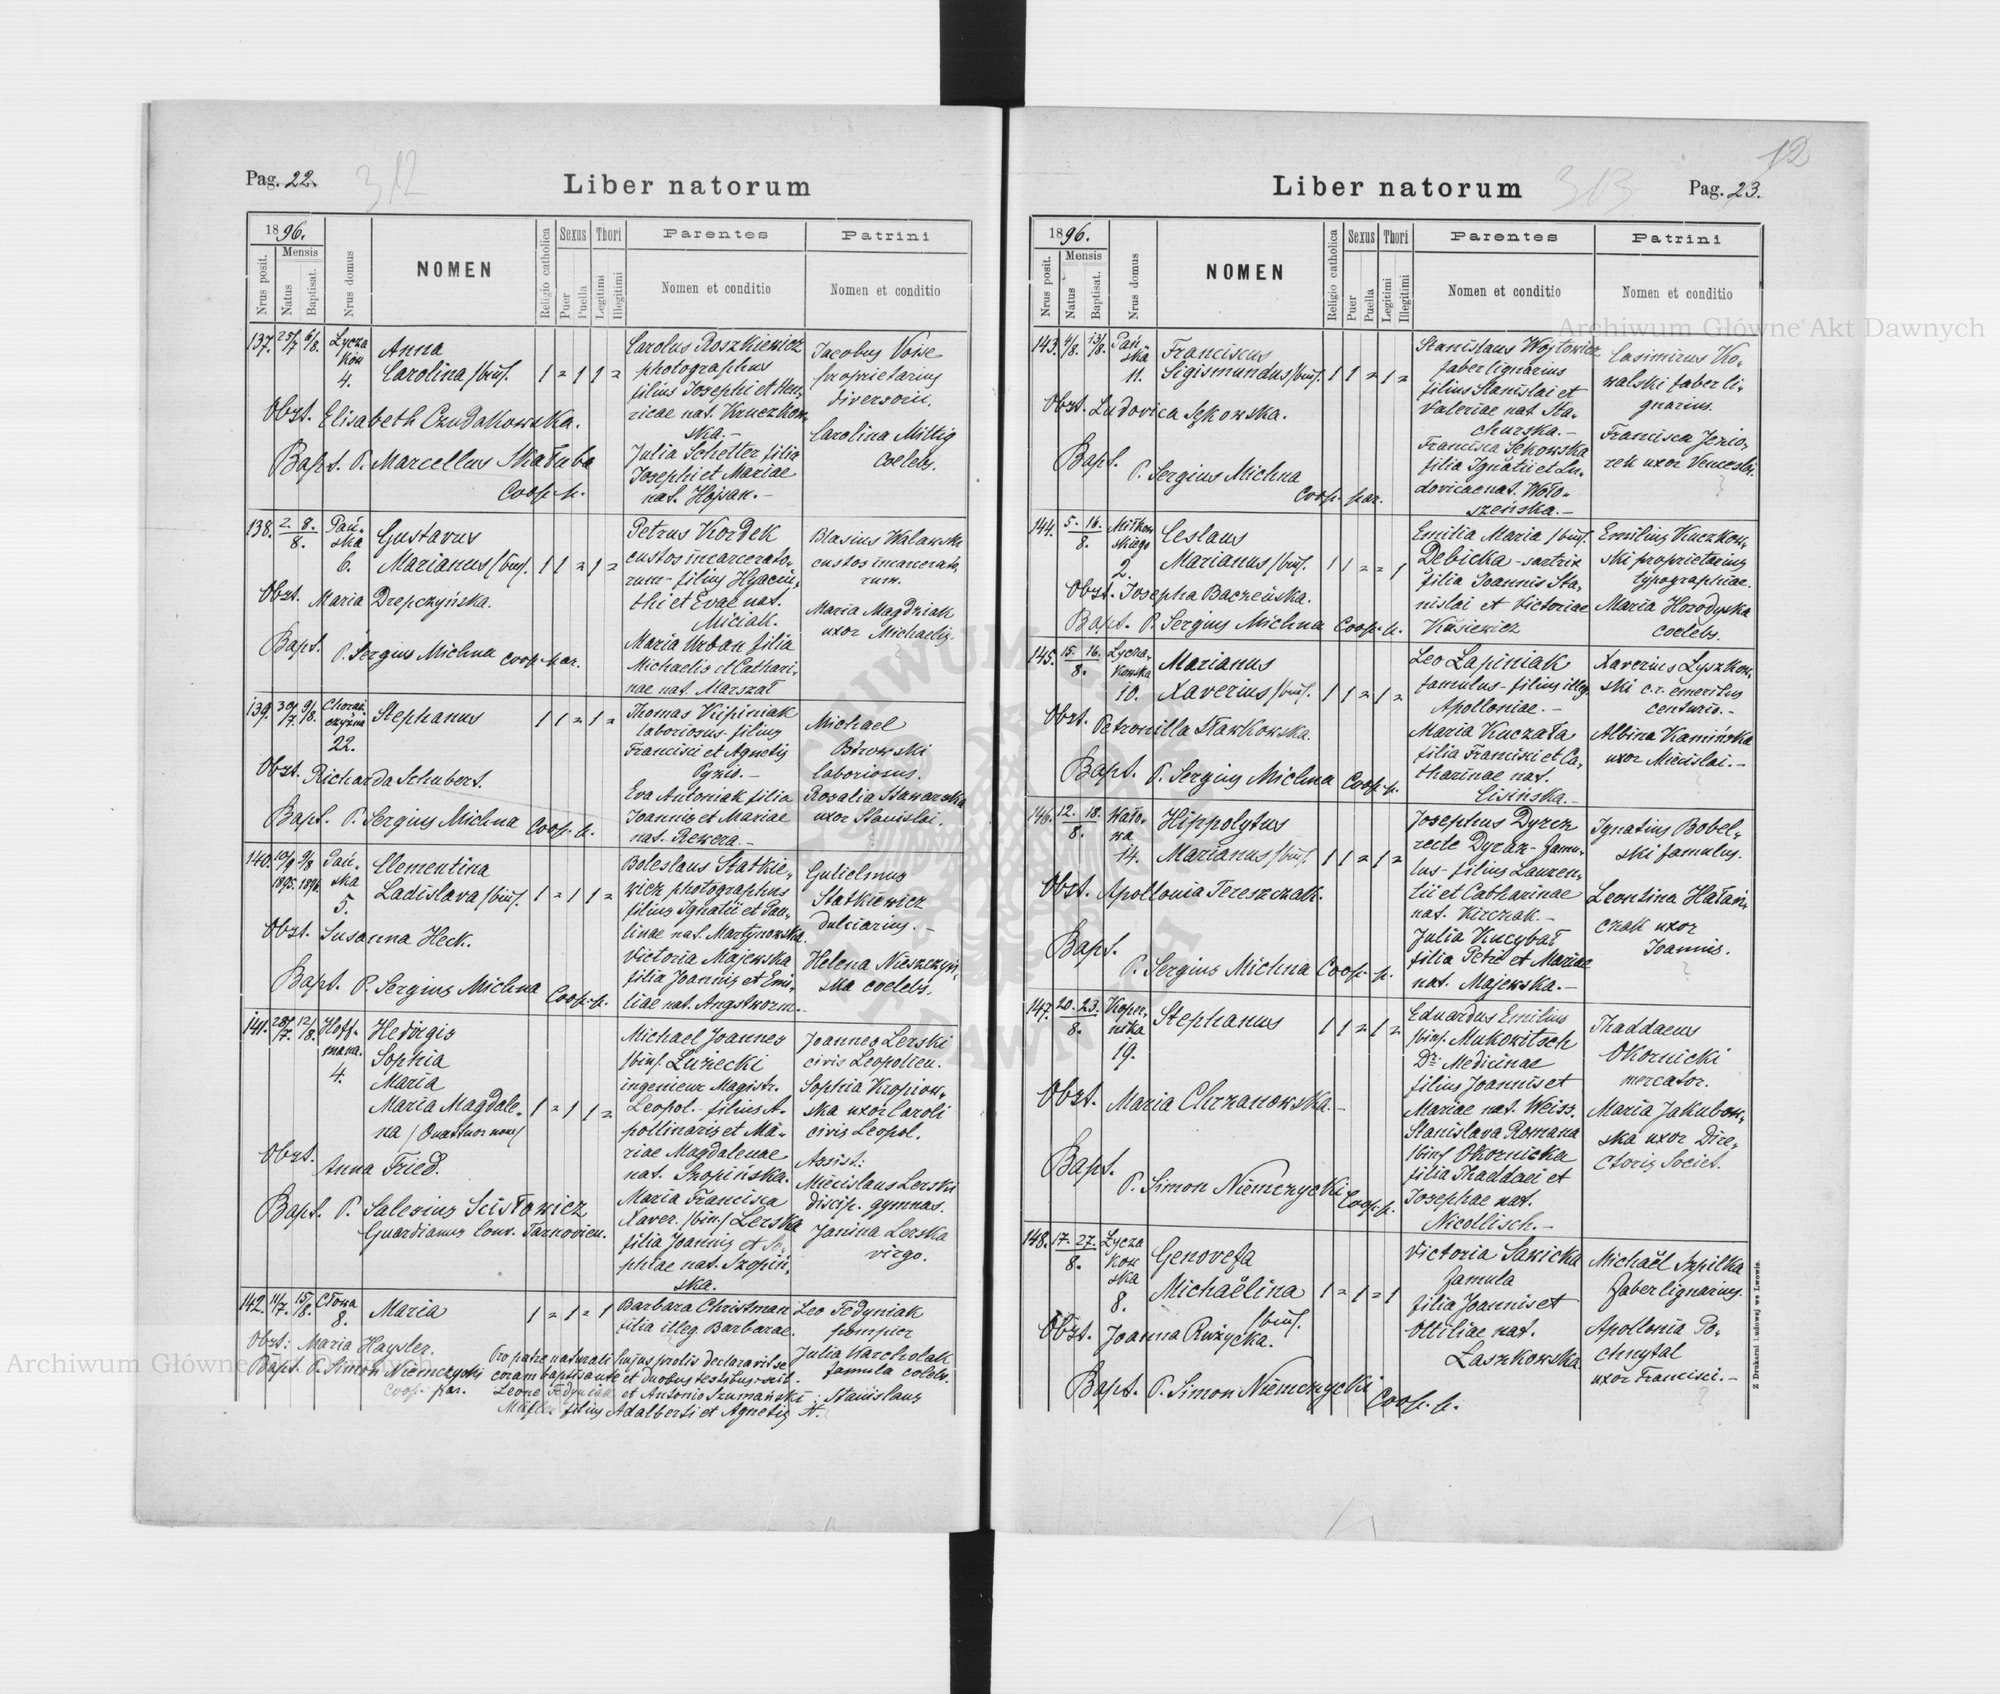 Pag. 22.
312
Liber natorum
1896.
Mensis
Nrus posit.
Natus
Baptisat.
Nrus domus
NOMEN
Religio catholica
Sexus
Puer
Puella
Thori
Legitimi
Illegitimi
Parentes
Nomen et conditio
Patrini
Nomen et conditio
137. 25/7 6/8. Lycza
kow
4.
Anna
Carolina /bin/. 1 = 1 1 =
Obst. Elisabeth Czudakowska.
Bapt. P. Marcellus Skałuba
Coop. p.
Carolus Roszkiewicz
photographus
filius Josephi et Hen-
ricae nat. Kruczkow-
ska.-
Julia Schetter filia
Josephi et Mariae
nat. Hojsan.-
Jacobus Voise
proprietarius
diversorii.
Carolina Mittig
coelebs.
138. 2. 8.
8.
Pań-
ska
6.
Gustavus
Marianus /bin/. 1 1 = 1 =
Obst. Maria Drepczyńska.
Bapt. P. Sergius Michna coop. par.
Petrus Kordek
custos incarcerato-
rum - filius Hyacin-
thi et Evae nat.
Miciak.
Maria Urban filia
Michaelis et Cathari-
nae nat. Marszał
Blasius Walawski
custos incarcerato
rum.
Maria Magdziak
uxor Michaelis.
139. 30/7. 9/8. Chorąż
czyzna
22.
Stephanus 1 1 = 1 =
Obst. Richarda Schubert.
Bapt. P. Sergius Michna Coop. p.
Thomas Kipiniak
laboriosus filius
Francisci et Agnetis
Pyzio.-
Eva Antoniak filia
Joannis et Mariae
nat. Rewera.-
Michael
Bdrowski
laboriosus.
Rosalia Stawarska
uxor Stanislai.
140. 10/9 9/8
1895. 1896.
Pań-
ska
5.
Clementina
Ladislava /bin/. 1 = 1 1 =
Obst. Susanna Heck.
Bapt. P. Sergius Michna Coop. p.
Boleslaus Statkie-
wicz photographus
filius Ignatii et Pau-
linae nat. Martynowska.
Victoria Majewska
filia Joannis et Emi-
liae nat. Angstworm.-
Gulielmus
Statkiewicz
dulciarius.-
Helena Nieszczyń-
ska coelebs.
141. 28/7. 12/8. Hoff-
mana.
4.
Hedvigis
Sophia
Maria
Maria Magdale-
na /Quatuor nom/ 1 = 1 1 =
Obst. Anna Fried.
Bapt. P. Salesius Scisłowicz
Guardianus Conv. Tarnovien.
Michael Joannes
/bin/. Łużecki
ingenieur Magistr.
Leopol. - filius A-
pollinaris et Ma-
riae Magdalenae
nat. Szopińska.
Maria Francisca
Xaver. /bin/ Lerska
filia Joannis et So-
phiae nat. Szopiń-
ska.
Joannes Lerski
civis Leopolien.
Sophia Kropiow-
ska uxor Caroli
civis Leopol.
Assist:
Miecislaus Lerski
discip. gymnas.
Janina Lerska
virgo.
142. 14/7. 15/8. Cłowa
8.
Maria 1 = 1 = 1
Obst: Maria Haysler.
Bapt. P. Simon Niemczycki
coop. par.
Barbara Christman
filia illeg. Barbarae.
Leo Fedyniak
pompier
Julia Karcholak
famula coelebs.
Pro patre naturali hujus prolis declaravit se
coram baptisante et duobus testibus scil.
Leone Fedyniak et Antonio Szumański; Stanislaus
filius Adalberti et Agnetis
12
Liber natorum
313
Pag. 23.
1896.
Mensis
Nrus posit.
Natus
Baptisat.
Nrus domus
NOMEN
Religio catholica
Sexus
Puer
Puella
Thori
Legitimi
Illegitimi
Parentes
Nomen et conditio
Patrini
Nomen et conditio
143. 4/8. 13/8. Pań
ska
11.
Franciscus
Sigismundus /bin/. 1 1 = 1 =
Obst. Ludovica Sękowska.
Bapt. P. Sergius Michna
Coop. par.
Stanislaus Wojtowicz
faber lignarius
filius Stanislai et
Valeriae nat. Sta-
churska.-
Francisca Sekowska
filia Ignatii et Lu-
dovicae nat. Woło-
szeńska.-
Casimirus Ko-
walski faber li-
gnarius.
Francisca Jezio-
rek uxor Venceslai.
144. 5. 16.
8.
Miłkow
skiego
2.
Ceslaus
Marianus /bin/. 1 1 = = 1
Obst. Josepha Baczeńska.
Bapt. P. Sergius Michna Coop. p.
Emilia Maria /bin/.
Debicka - sartrix
filia Joannis Sta-
nislai et Victoriae
Krisiewicz
Emilius Kuczkow-
ski proprietarius
typographiae.
Maria Horodyska
coelebs.
145. 15. 16.
8.
Lycza-
kowska
10.
Marianus
Xaverius /bin/. 1 1 = 1 =
Obst. Petronilla Sławkowska.
Bapt. P. Sergius Michna Coop. p.
Leo Łapiniak
famulus - filius illeg.
Apolloniae.-
Maria Kuczała
filia Francisci et Ca-
tharinae nat.
Cisińska.-
Xaverius Łyszkow-
ski c.r. emeritus
centurio.-
Albina Kamińska
uxor Miecislai.-
146. 12. 18.
8.
Wało-
wa
14.
Hippolytus
Marianus /bin/. 1 1 = 1 =
Obst. Apollonia Tereszczak.
Bapt. P. Sergius Michna Coop. p.
Josephus Dyrcz
recte Dyrdz - famu-
lus - filius Lauren-
tii et Catharinae
nat. Kirczak.-
Julia Kucybał
filia Petri et Mariae
nat. Majewska.-
Ignatius Bobel-
ski famulus.
Leontina Hałań-
czak uxor
Joannis.
147. 20. 23.
8.
Koper-
nika
19.
Stephanus 1 1 = 1 =
Obst. Maria Chrzanowska.-
Bapt. P. Simon Niemczycki Coop. p.
Eduardus Emilius
/bin/. Mukowitsch
Dr. Medicinae
filius Joannis et
Mariae nat. Weiss.
Stanislava Romana
/bin/ Okornicka
filia Thaddaei et
Josephae nat.
Nicollisch.-
Thaddaeus
Okornicki
mercator.
Maria Jakubow-
ska uxor Dire-
ctoris Societ.
148. 17. 27.
8.
Lycza
kow
ska
8.
Genovefa
Michaëlina 1 = 1 = 1
/bin/.
Obst. Joanna Rużycka.
Bapt. P. Simon Niemczycki
Coop. p.
Victoria Sawicka
famula
filia Joannis et
Ottiliae nat.
Łaszkowska.
Michaël Szpilka
faber lignarius.
Apollonia Po-
chnytal
uxor Francisci.-
Z Drukarni Ludowej we Lwowie.
Archiwum Główne Akt Dawnych
Archiwum Główne Akt Dawnych